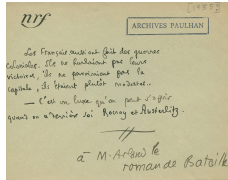 nrf
[1953]
ARCHIVES PAULHAN
Les Français aussi ont fait des guerres
coloniales. S'ils ne hurlaient pas leurs
victoires, ils ne pavoisaient pas la
capitale, ils étaient plutôt modestes.
— C'est un luxe qu'on peut s'offrir
quand on a derrière soi Rocroy et Austerlitz.
à M. Arland le
roman de Bataille